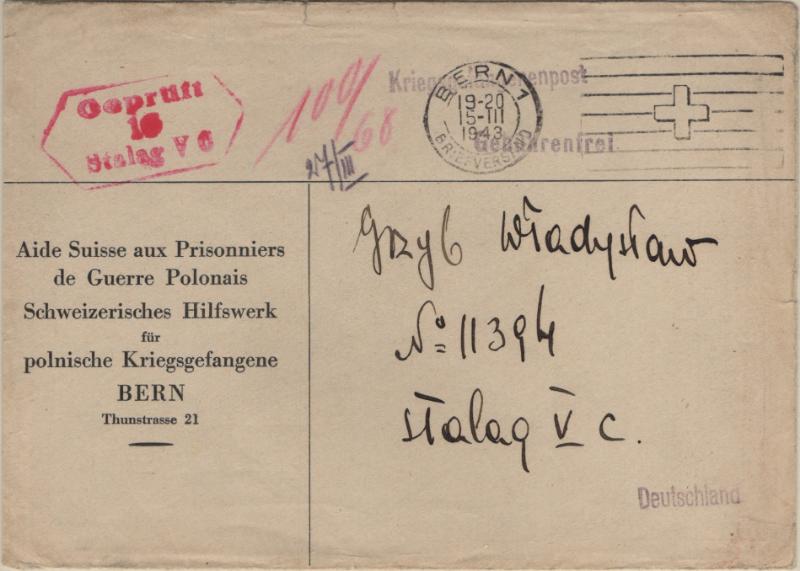 Geprüft
16
Stalag V C
100/
68
27/III
Kriegsgefangenenpost
Gebührenfrei
BERN 1
19-20
15-III
1943
BRIEFVERSAND
Aide Suisse aux Prisonniers
de Guerre Polonais
Schweizerisches Hilfswerk
für
polnische Kriegsgefangene
BERN
Thunstrasse 21
Grzyb Władysław
No 11394
Stalag V C.
Deutschland